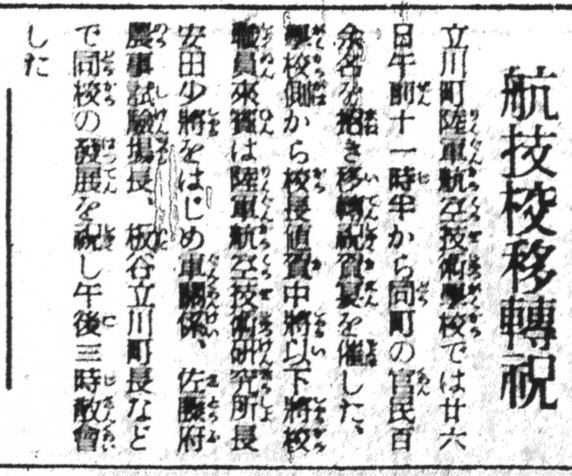 航技校移轉祝
立川町陸軍航空技術學校では廿六
日午前十一時半から同町の官民百
余名を招き移轉祝賀宴を催した、
學校側から校長値賀中將以下將校
職員來賓は陸軍航空技術研究所長
安田少將をはじめ軍關係、佐藤府
農事試驗場長、板谷立川町長など
で同校の發展を祝し午後三時散會
した